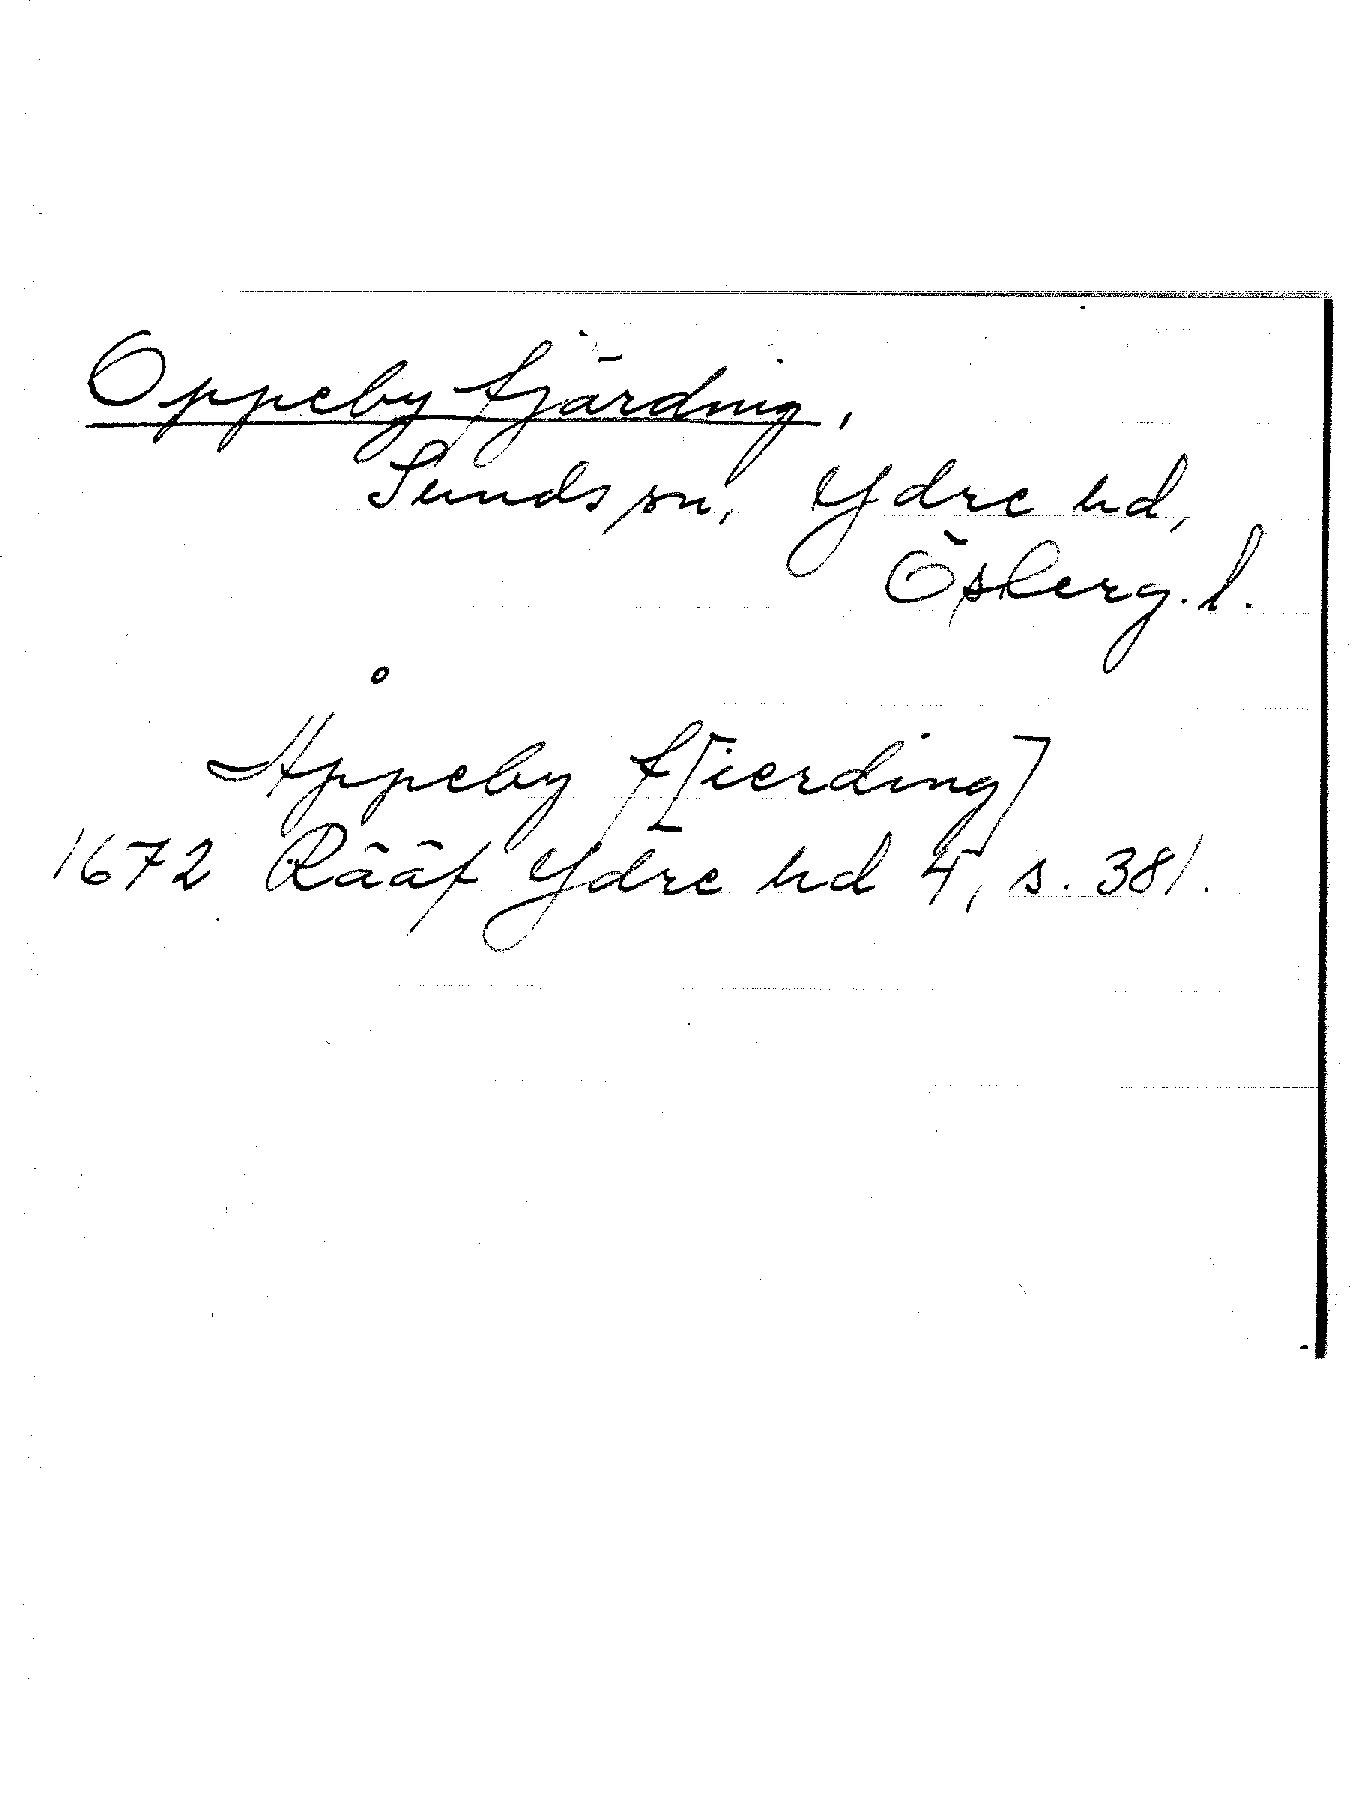 Oppeby fjärding,
Sunds sn, Ydre hd,
Österg. l.
Åppeby f[ierding]
1672 Rääf Ydre hd 4, s. 381.